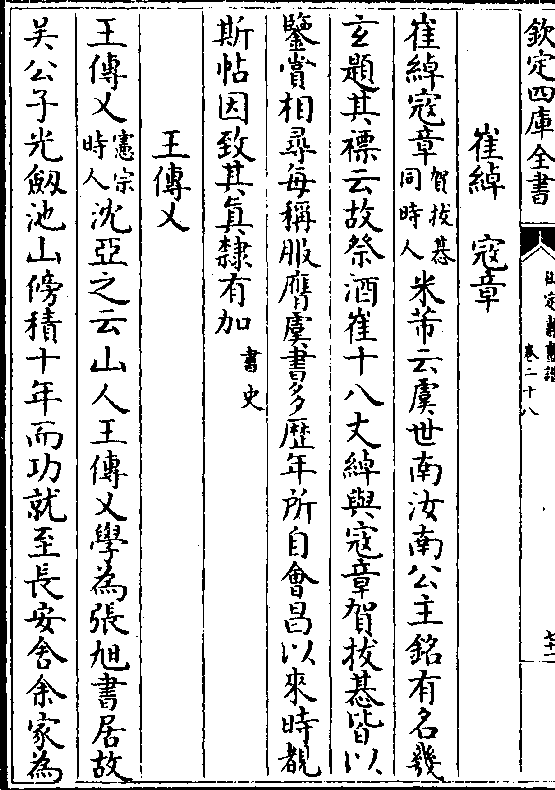 欽定四庫全書
御定佩文齋書畫譜 卷二十八
崔綽 寇章
崔綽寇章賀拔惎同時人米芾云虞世南汝南公主銘有名幾
玄題其褾云故祭酒崔十八丈綽與寇章賀拔惎皆以
鑒賞相尋每稱服膺虞書多歷年所自會昌以來時覩
斯帖因致其眞隸有加書史
王傳乂
王傳乂憲宗時人沈亞之云山人王傳乂學為張旭書居故
吴公子光劔池山傍積十年而功就至長安舍余家為